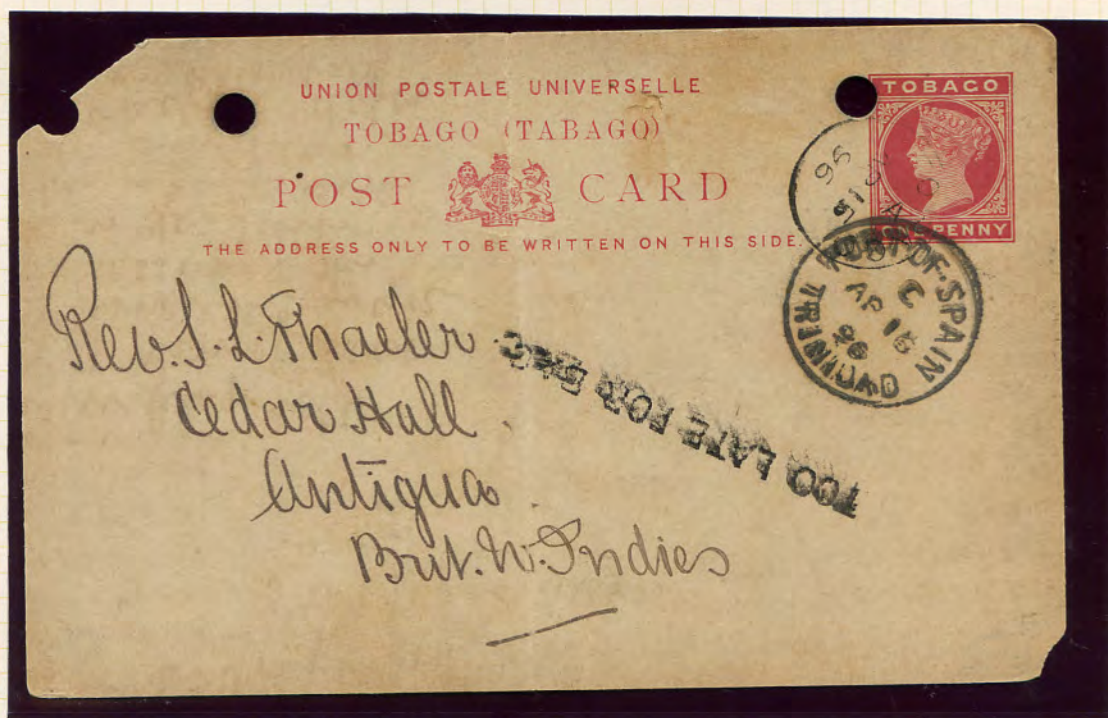 UNION POSTALE UNIVERSELLE
TOBAGO (TABAGO)
POST CARD
THE ADDRESS ONLY TO BE WRITTEN ON THIS SIDE.
TOBAGO
ONE PENNY
96
PORT-OF-SPAIN
C
AP 15
96
TRINIDAD
TOO LATE FOR BAG
Rev. S. L. Thaeler
Cedar Hall
Antigua
Brit. W. Indies